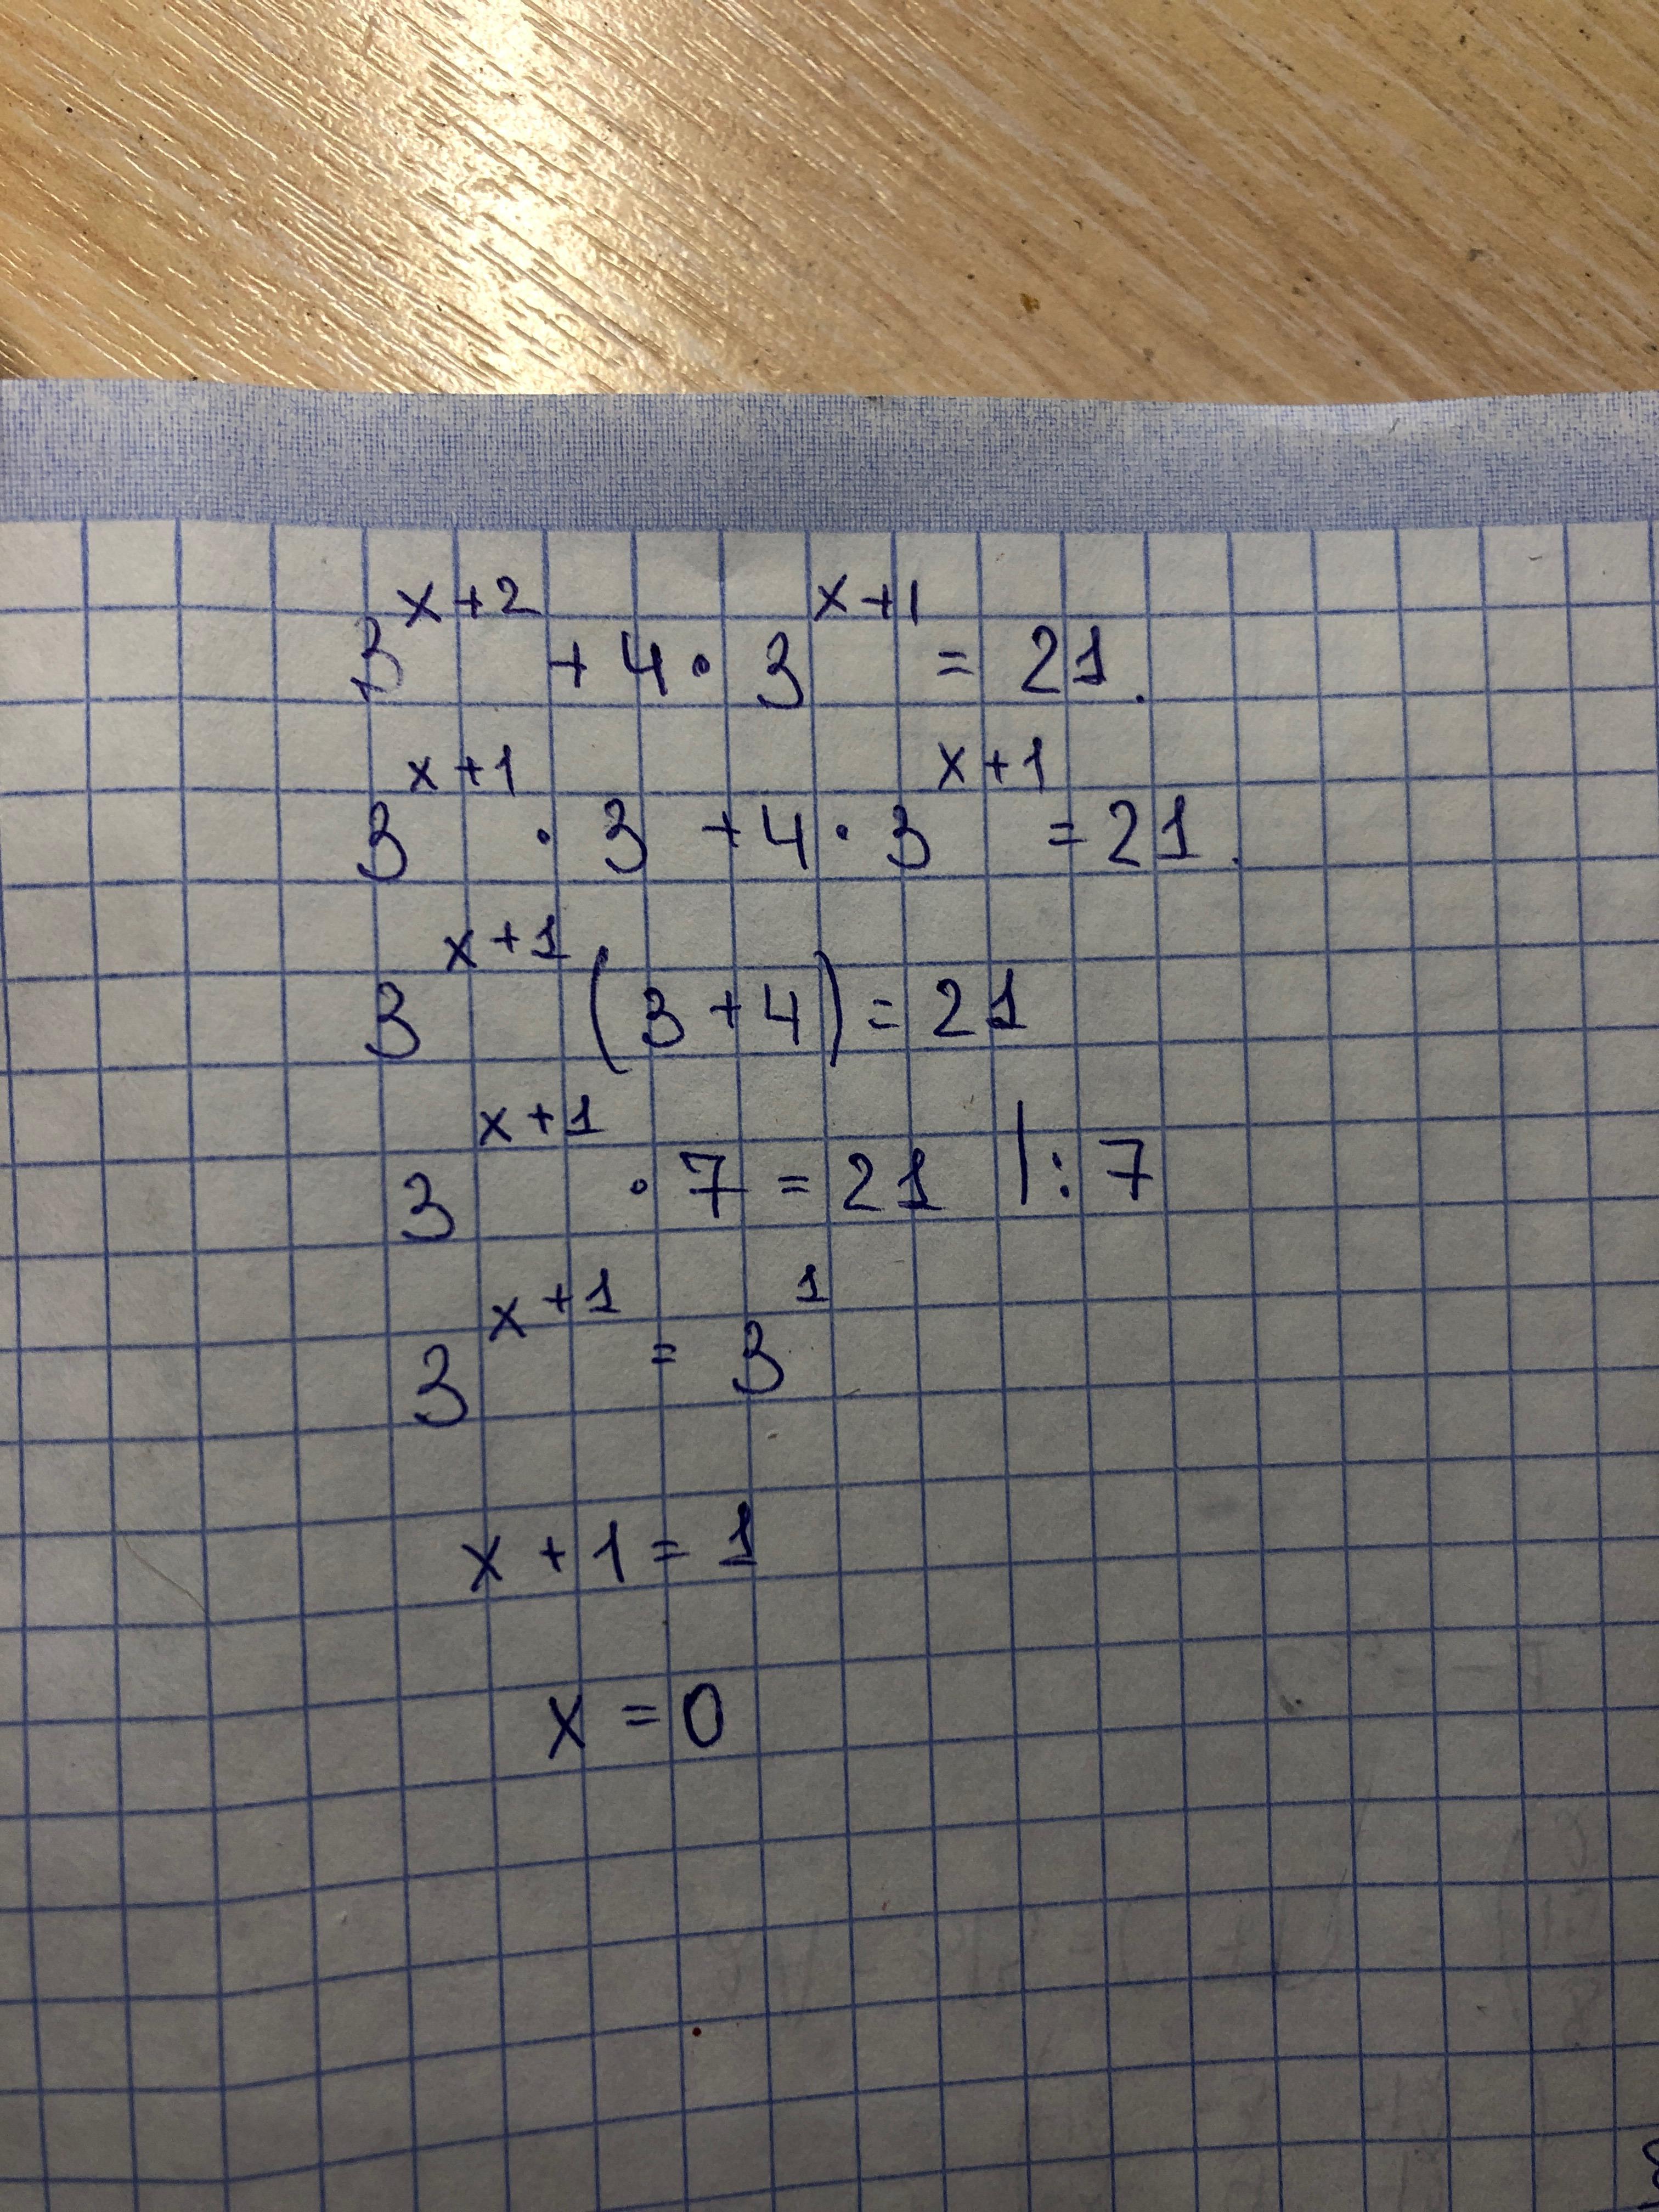 3^{x+2} + 4 · 3^{x+1} = 21.
3^{x+1} · 3 + 4 · 3^{x+1} = 21.
3^{x+1} (3 + 4) = 21
3^{x+1} · 7 = 21 | : 7
3^{x+1} = 3^1
x + 1 = 1
x = 0